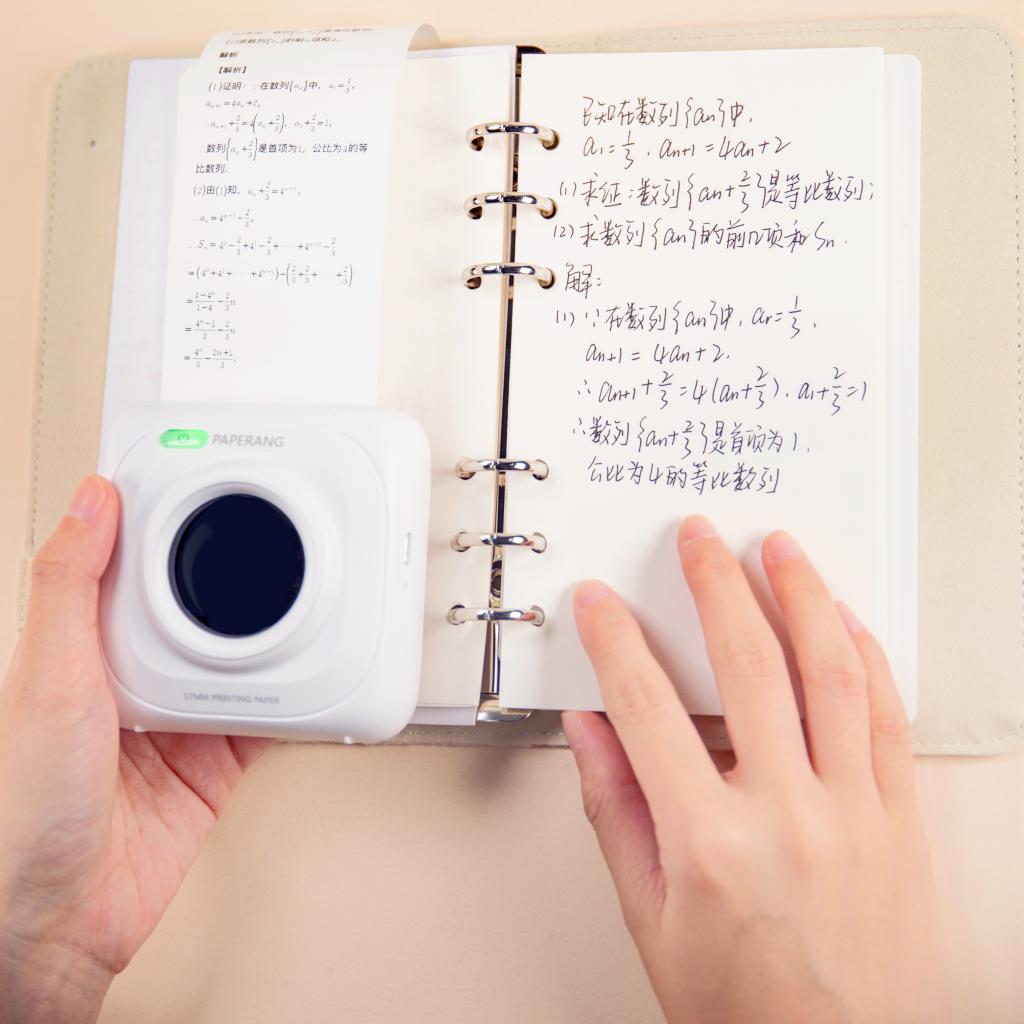 (2)求数列{aₙ}的前n项和Sₙ.
解析
【解析】
(1)证明: ∵在数列{aₙ}中, a₁=1/3,
aₙ₊₁=4aₙ+2,
∴aₙ₊₁+2/3=4(aₙ+2/3), a₁+2/3=1,
∴数列{aₙ+2/3}是首项为1, 公比为4的等
比数列.
(2)由(1)知, aₙ+2/3=4ⁿ⁻¹,
∴aₙ=4ⁿ⁻¹-2/3,
∴Sₙ=4⁰-2/3+4¹-2/3+···+4ⁿ⁻¹-2/3
=(4⁰+4¹+···+4ⁿ⁻¹)-(2/3+2/3+···+2/3)
=(1-4ⁿ)/(1-4)-2/3n
=(4ⁿ-1)/3-2/3n
=4ⁿ/3-(2n+1)/3.
PAPERANG
57MM PRINTING PAPER
已知在数列{an}中,
a1=1/3, an+1=4an+2
(1)求证:数列{an+2/3}是等比数列;
(2)求数列{an}的前n项和Sn.
解:
(1)∵在数列{an}中, a1=1/3,
an+1=4an+2.
∴an+1+2/3=4(an+2/3), a1+2/3=1
∴数列{an+2/3}是首项为1,
公比为4的等比数列